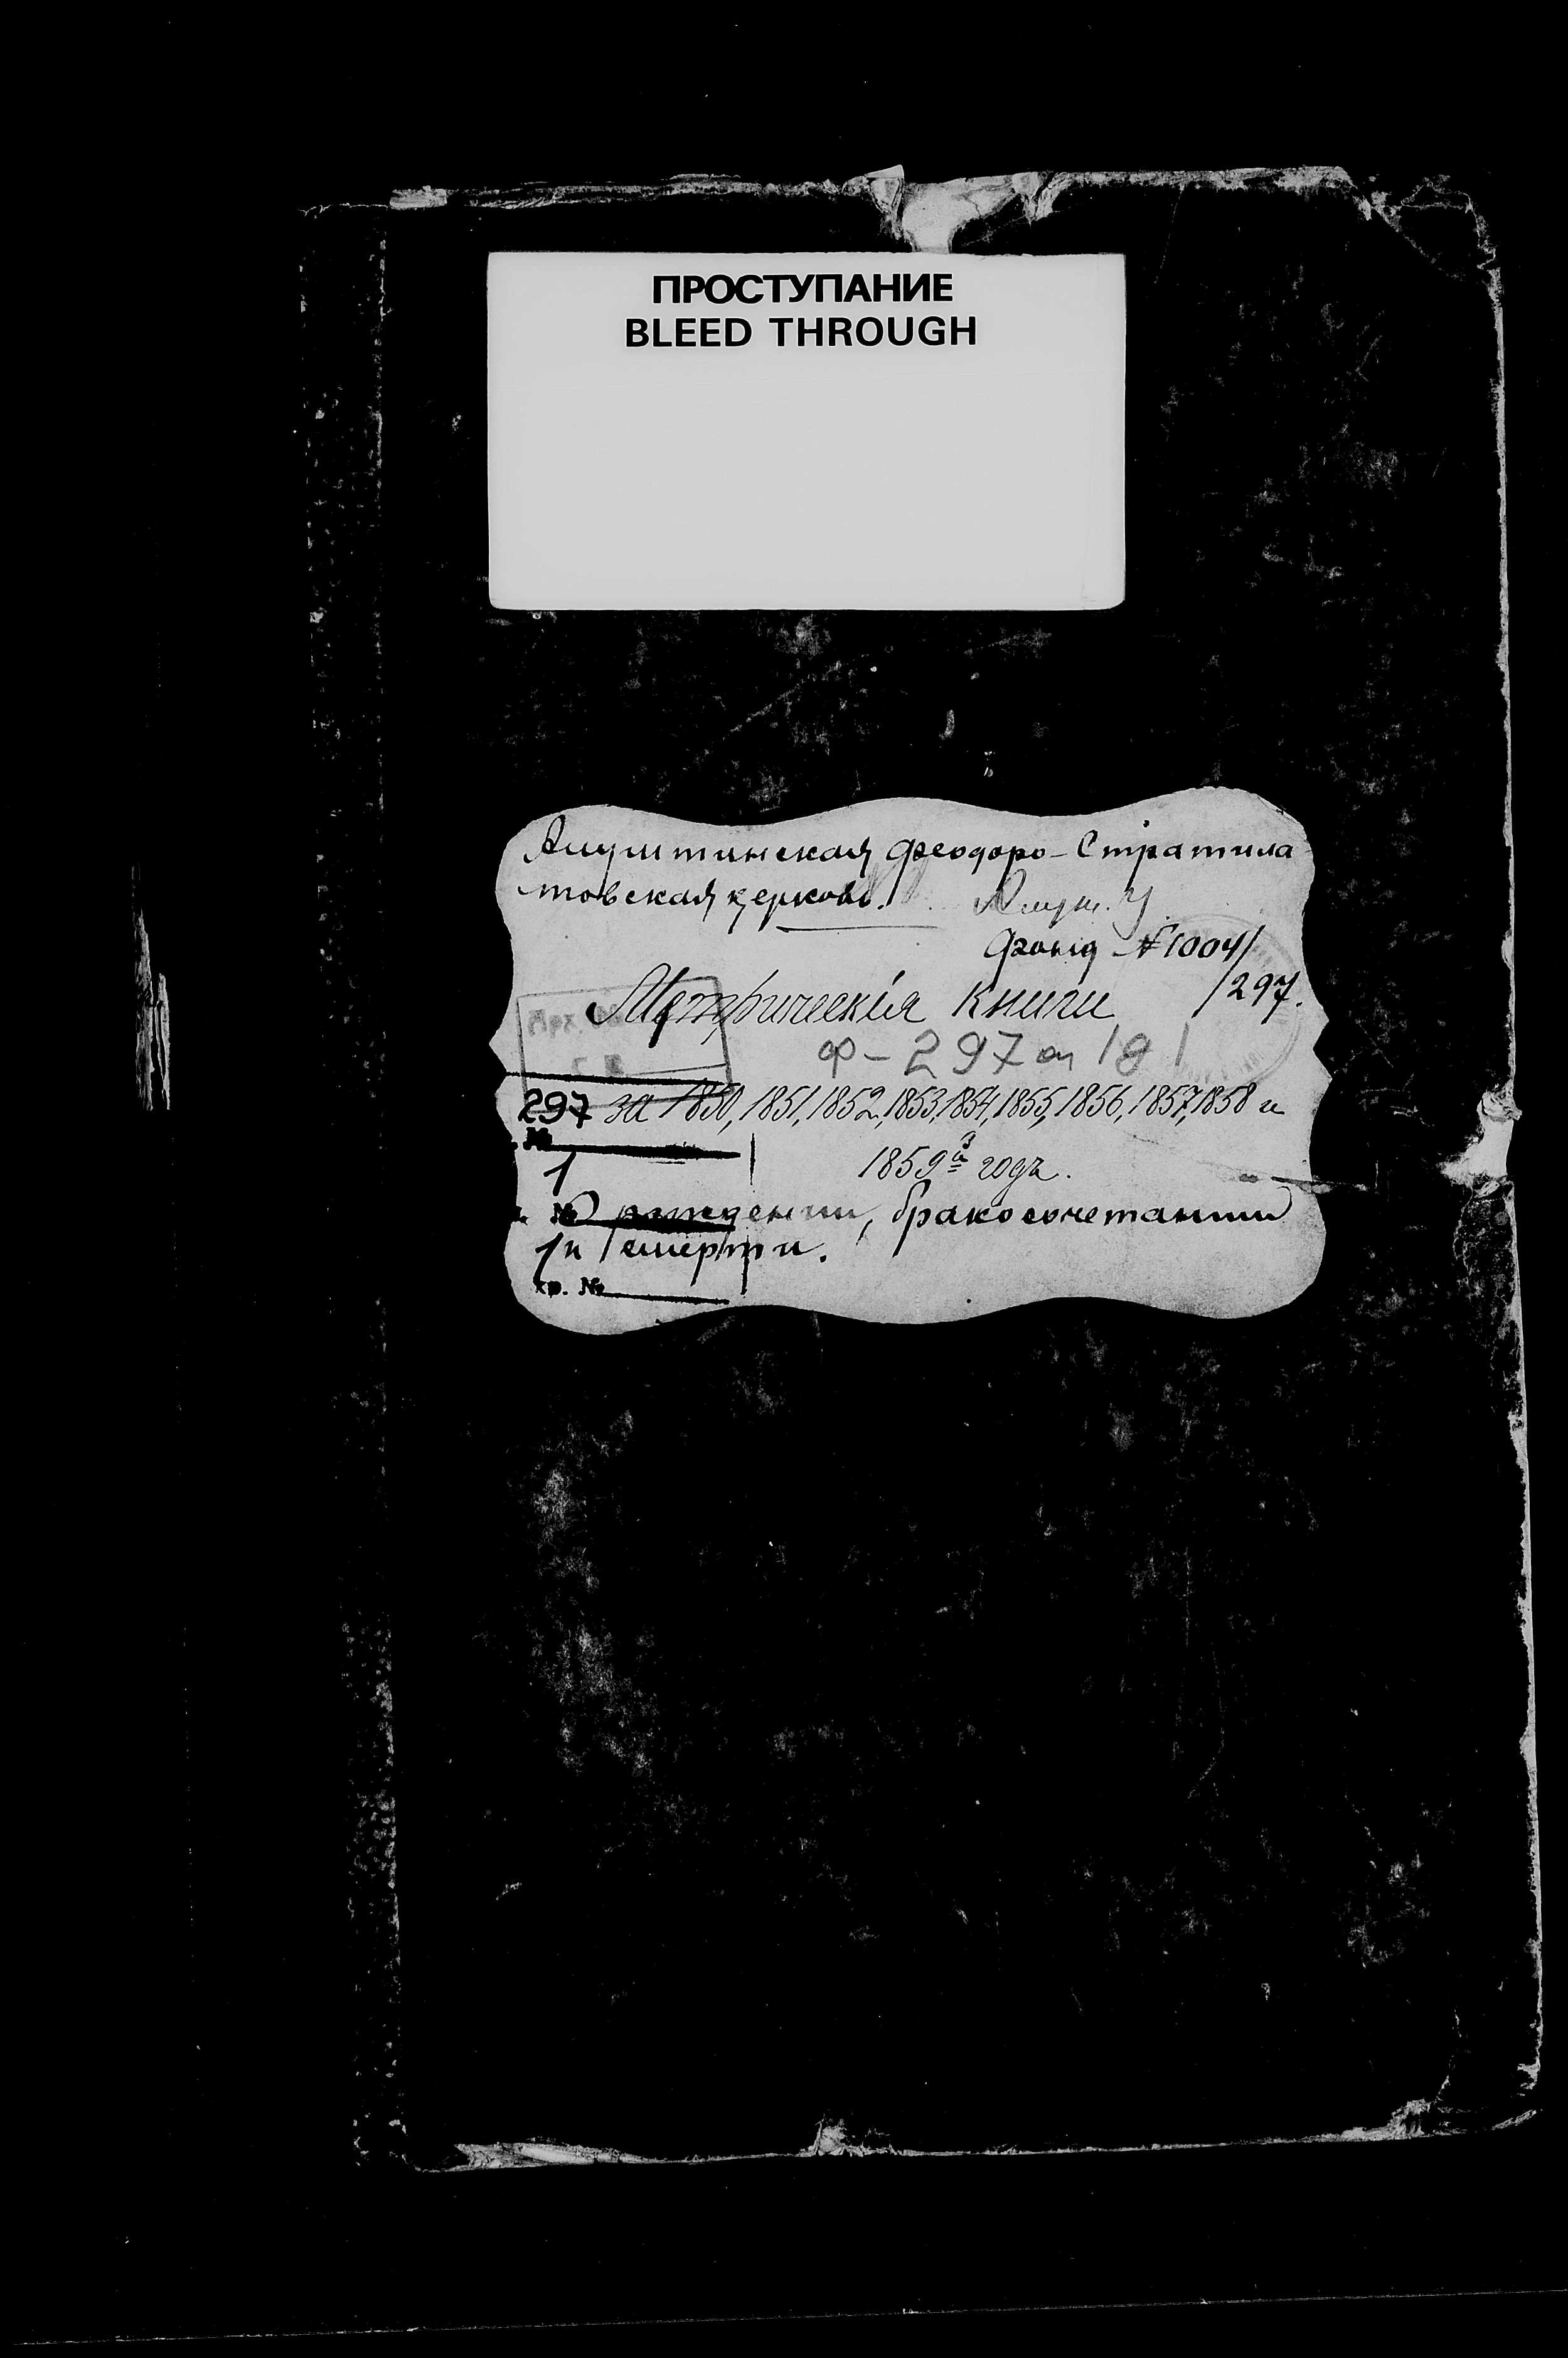 ПРОСТУПАНИЕ
BLEED THROUGH
Алуштинская Феодоро-Стратила
товская церковь.
Фонд №1004/
/297.
Метрическія книги
Арх.
Ф-297 оп 1 д 1
297 за 1850, 1851, 1852, 1853, 1854, 1855, 1856, 1857, 1858 и
№
1 1859й годъ.
№ О рождении, бракосочетании
1 и смерти.
хр. №